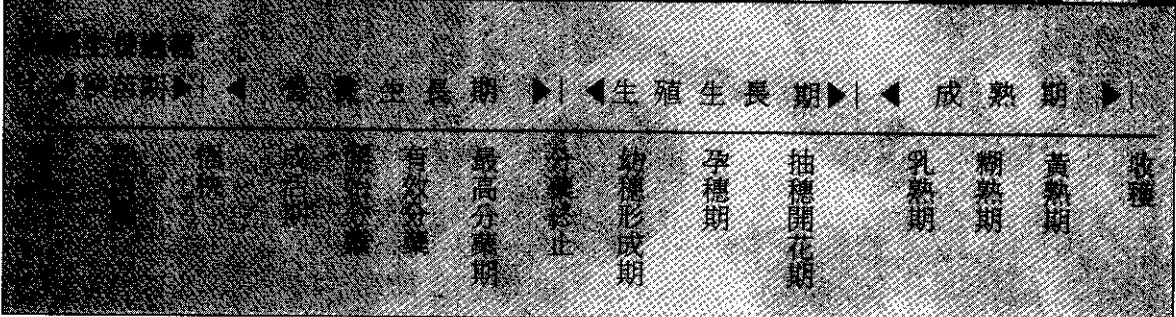 生長過程
◀ 育苗期 ▶｜◀ 營養生長期 ▶｜◀ 生殖生長期 ▶｜◀ 成熟期 ▶｜
插秧
成活期
開始分蘗
有效分蘗
最高分蘗期
分蘗終止
幼穗形成期
孕穗期
抽穗開花期
乳熟期
糊熟期
黃熟期
收穫